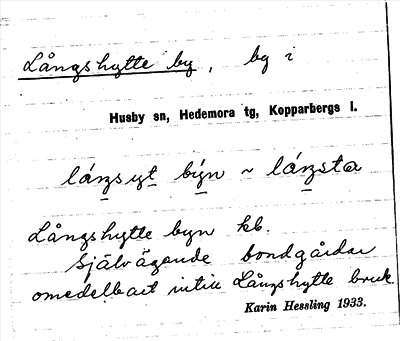 Långshytte by, by i
Husby sn, Hedemora tg, Kopparbergs l.
lánsyt býn ~ lánsta
Långshytte byn kb.
Självägande bondgårdar
omedelbart intill Långshytte bruk.
Karin Hessling 1933.